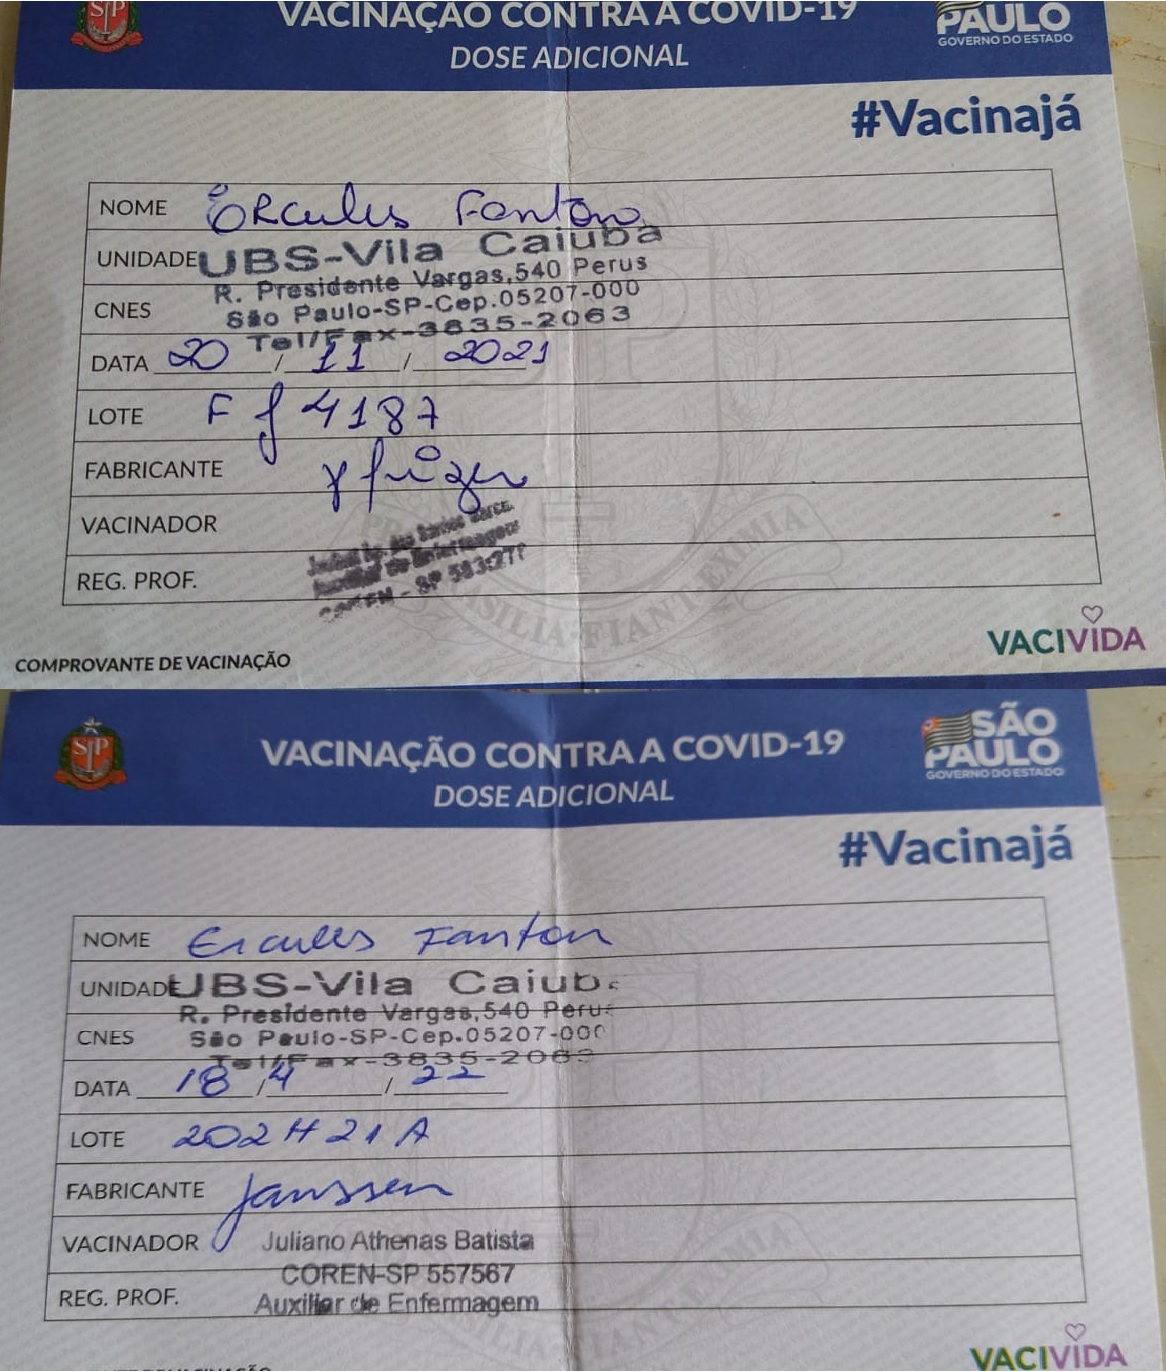 VACINAÇÃO CONTRA A COVID-19
DOSE ADICIONAL
PAULO
GOVERNO DO ESTADO
#Vacinajá
NOME Ércules Fanton
UNIDADE UBS-Vila Caiuba
R. Presidente Vargas,540 Perus
CNES São Paulo-SP-Cep.05207-000
Tel/Fax-3835-2063
DATA 20 / 11 / 2021
LOTE Ff 4187
FABRICANTE Pfizer
VACINADOR
Auxiliar de Enfermagem
REG. PROF. COREN - SP
COMPROVANTE DE VACINAÇÃO
VACIVIDA
SP
VACINAÇÃO CONTRA A COVID-19
DOSE ADICIONAL
SÃO
PAULO
GOVERNO DO ESTADO
#Vacinajá
NOME Ercules Fanton
UNIDADE UBS-Vila Caiub
R. Presidente Vargas,540 Perus
CNES São Paulo-SP-Cep.05207-000
Tel/Fax-3835-2063
DATA 18 / 4 / 22
LOTE 202H21A
FABRICANTE Janssen
VACINADOR Juliano Athenas Batista
COREN-SP 557567
REG. PROF. Auxiliar de Enfermagem
VACIVIDA